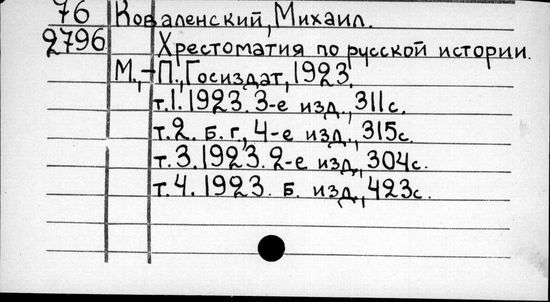 76 Коваленский, Михаил.
2796 Хрестоматия по русской истории.
М.,-П., Госиздат, 1923.
т.1. 1923. 3-е изд., 311с.
т.2. б. г., 4-е изд., 315с.
т.3. 1923. 2-е изд., 304с.
т.4. 1923. б. изд., 423с.